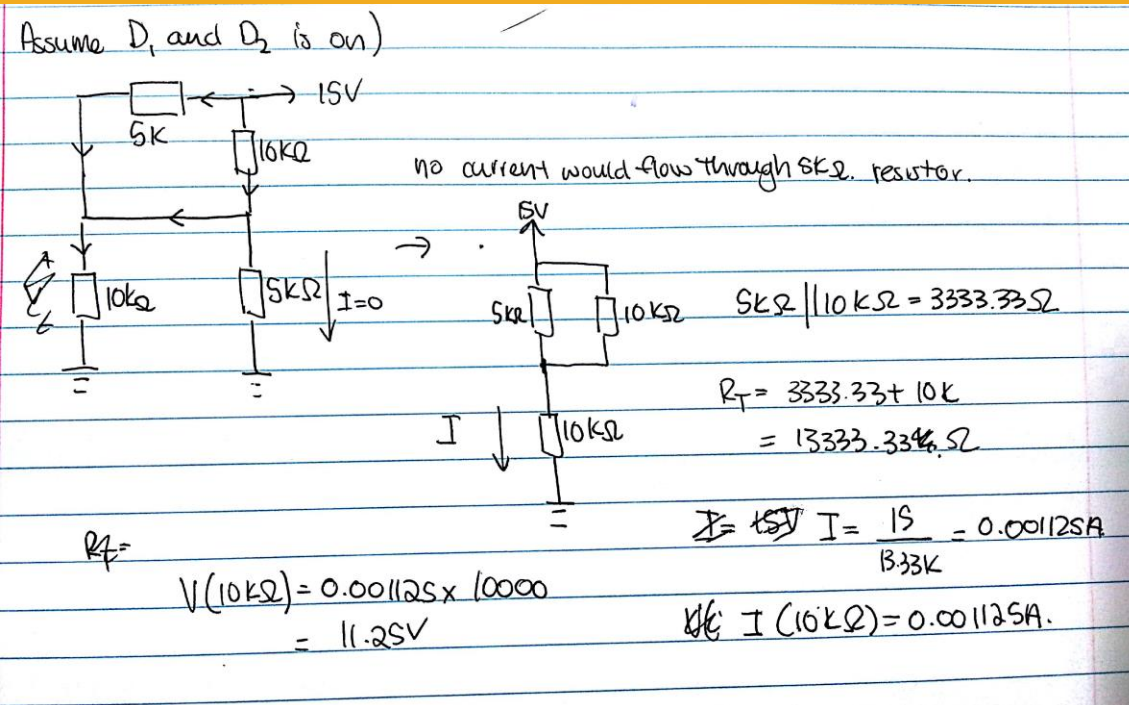 Assume D₁ and D₂ is on)
15V
5K
10KΩ
no current would flow through 5KΩ. resistor.
15V
→
10kΩ
5KΩ
I=0
5KΩ
10KΩ
5KΩ || 10KΩ = 3333.33Ω
R_T = 3333.33 + 10K
= 13333.334 Ω
I
10KΩ
I = 15V I = 15/13.33K = 0.001125A
Rt=
V(10KΩ) = 0.001125 x 10000
= 11.25V
I (10KΩ) = 0.001125A.